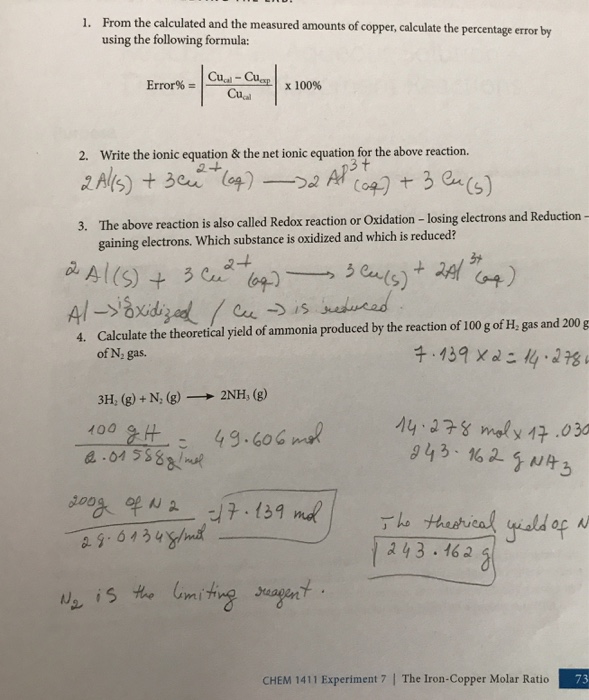 1. From the calculated and the measured amounts of copper, calculate the percentage error by
using the following formula:
Error% = | Cu_cal – Cu_exp / Cu_cal | x 100%
2. Write the ionic equation & the net ionic equation for the above reaction.
2 Al(s) + 3Cu²⁺(aq) ⟶ 2 Al³⁺(aq) + 3 Cu(s)
3. The above reaction is also called Redox reaction or Oxidation – losing electrons and Reduction –
gaining electrons. Which substance is oxidized and which is reduced?
2 Al(s) + 3 Cu²⁺(aq) ⟶ 3 Cu(s) + 2Al³⁺(aq)
Al → is oxidized / Cu → is reduced.
4. Calculate the theoretical yield of ammonia produced by the reaction of 100 g of H₂ gas and 200 g
of N₂ gas.
7.139 x 2 = 14.278
3H₂ (g) + N₂ (g) ⟶ 2NH₃ (g)
100 g H / 2.01588g/mol = 49.606 mol
14.278 mol x 17.030
243.162 g NH3
200g of N2 / 28.0134g/mol = 7.139 mol
The theorical yield of N
243.162 g
N₂ is the limiting reagent.
CHEM 1411 Experiment 7 | The Iron-Copper Molar Ratio 73